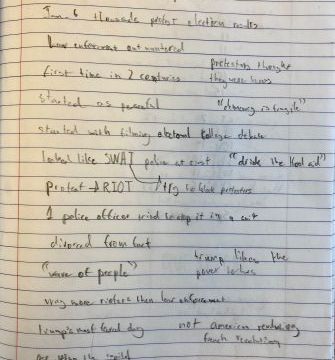 Jan. 6 thousands protest election votes
Law enforcement outnumbered
protesters thought
first time in 2 centuries they were heros
started as peaceful "democracy is fragile"
started with filming electoral college debate
looked like SWAT police at first "drink the kool aid"
protest → RIOT trying to block protesters
1 police officer tried to stop it in a suit
divorced from fact
trump likens the
"wave of people" power to hers
way more rioters then law enforcement
trump's most day not american revolution
french revolution
the capitol